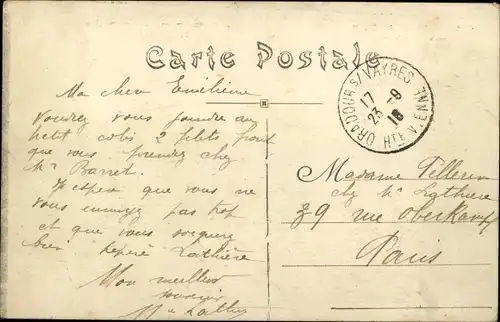 Carte Postale
ORADOUR S/ VAYRES
17
23 -8
18
HTE VIENNE
Ma chère Emilienne
Voudrez vous joindre au
petit colis 2 filets pour
que vous prendrez chez
Mr Barret.
J'espère que vous ne
vous ennuyez pas trop
et que vous soignez
bien Lathière
Mon meilleur
souvenir
Madame Pellerin
chez Mr Lathière
39 rue Oberkampf
Paris